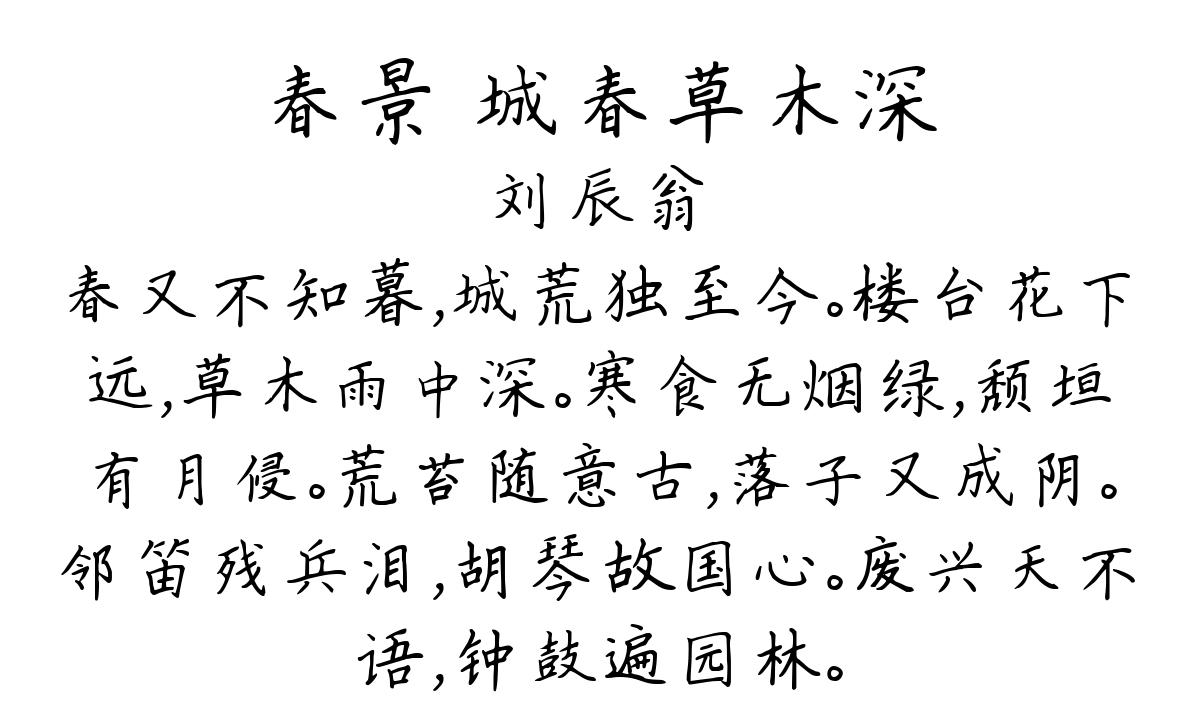 春景 城春草木深
刘辰翁
春又不知暮,城荒独至今。楼台花下
远,草木雨中深。寒食无烟绿,颓垣
有月侵。荒苔随意古,落子又成阴。
邻笛残兵泪,胡琴故国心。废兴天不
语,钟鼓遍园林。